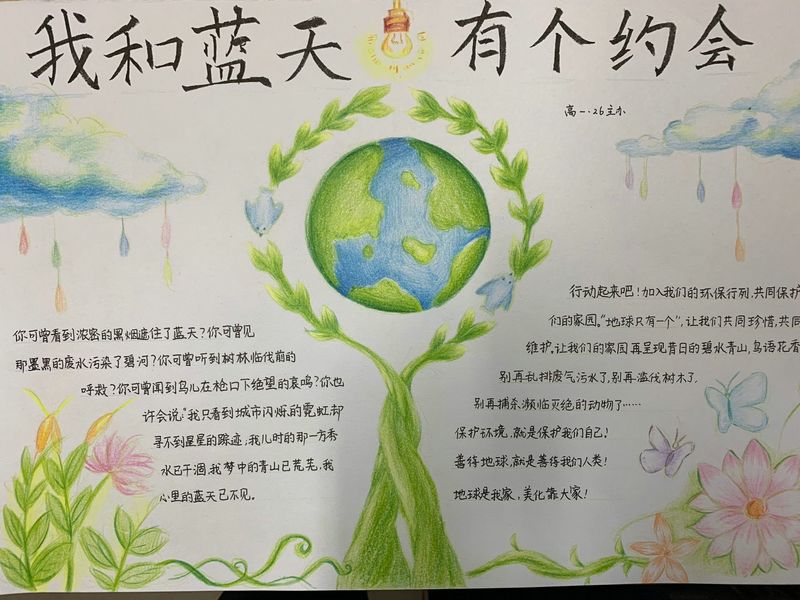 我和蓝天有个约会
高一·26主办
你可曾看到浓密的黑烟遮住了蓝天?你可曾见
那墨黑的废水污染了碧河?你可曾听到树林临伐前的
呼救?你可曾闻到鸟儿在枪口下绝望的哀鸣?你也
许会说:"我只看到城市闪烁的霓虹却
寻不到星星的踪迹,我儿时的那一方秀
水已干涸,我梦中的青山已荒芜,我
心里的蓝天已不见。
行动起来吧!加入我们的环保行列,共同保护
们的家园。"地球只有一个",让我们共同珍惜,共同
维护。让我们的家园再呈现昔日的碧水青山,鸟语花香
别再乱排废气污水了,别再滥伐树木了,
别再捕杀濒临灭绝的动物了……
保护环境,就是保护我们自己!
善待地球,就是善待我们人类!
地球是我家,美化靠大家!